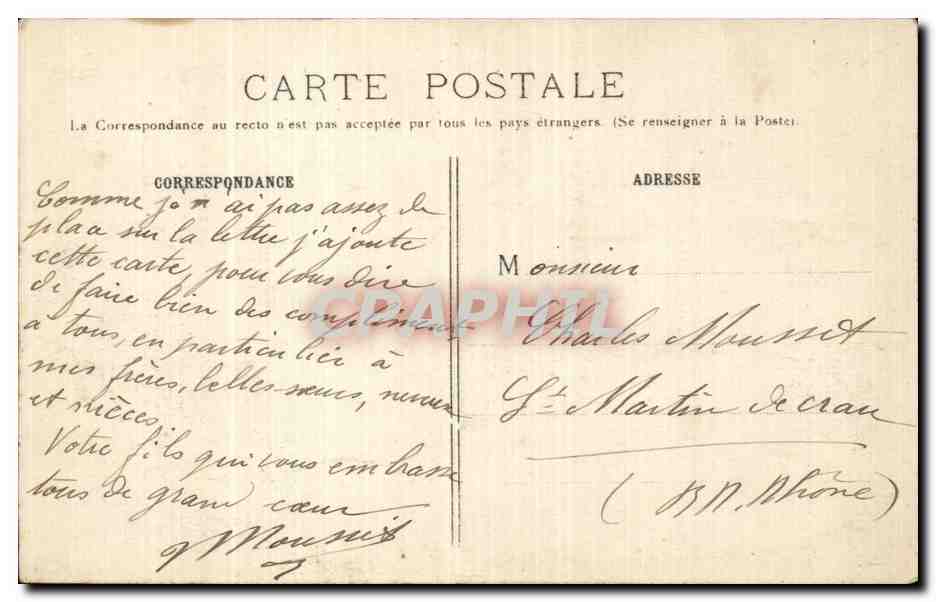 CARTE POSTALE
La Correspondance au recto n'est pas acceptée par tous les pays étrangers. (Se renseigner à la Poste).
CORRESPONDANCE
Comme je n'ai pas assez de
plaa sur la lettre j'ajoute
cette carte, pour vous dire
de faire bien des compliments
a tous, en particulier à
mes frères, belles-sœurs, neveux
et nièces.
Votre fils qui vous embrasse
tous de grand cœur
Mousset
ADRESSE
Monsieur
Charles Mousset
St Martin de crau
(B. R. Rhône)
CPAPHIL